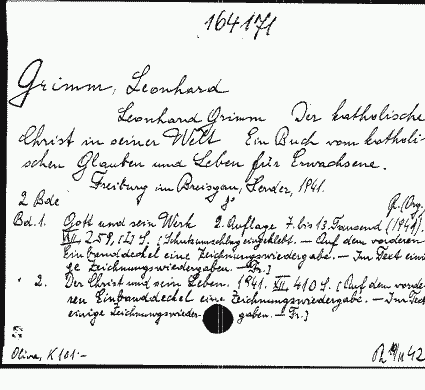 164171
Grimm, Leonhard
Leonhard Grimm Der katholische
Christ in seiner Welt Ein Buch vom katholi-
schen Glauben und Leben für Erwachsene.
Freiburg im Breisgau, Herder, 1941.
2 Bde 8° R. (Org.
Bd. 1. Gott und sein Werk 2. Auflage 7. bis 13. Tausend (1941).
XII, 259, [2] S. [Schutzumschlag eingeklebt. — Auf dem vorderen
Einbanddeckel eine Zeichnungswiedergabe. — Im Text eini-
ge Zeichnungswiedergaben. — Fr.]
" 2. Der Christ und sein Leben. 1941. XII, 410 S. [Auf dem vorde-
ren Einbanddeckel eine Zeichnungswiedergabe. — Im Text
einige Zeichnungswieder- gaben. — Fr.]
K 101.- 42